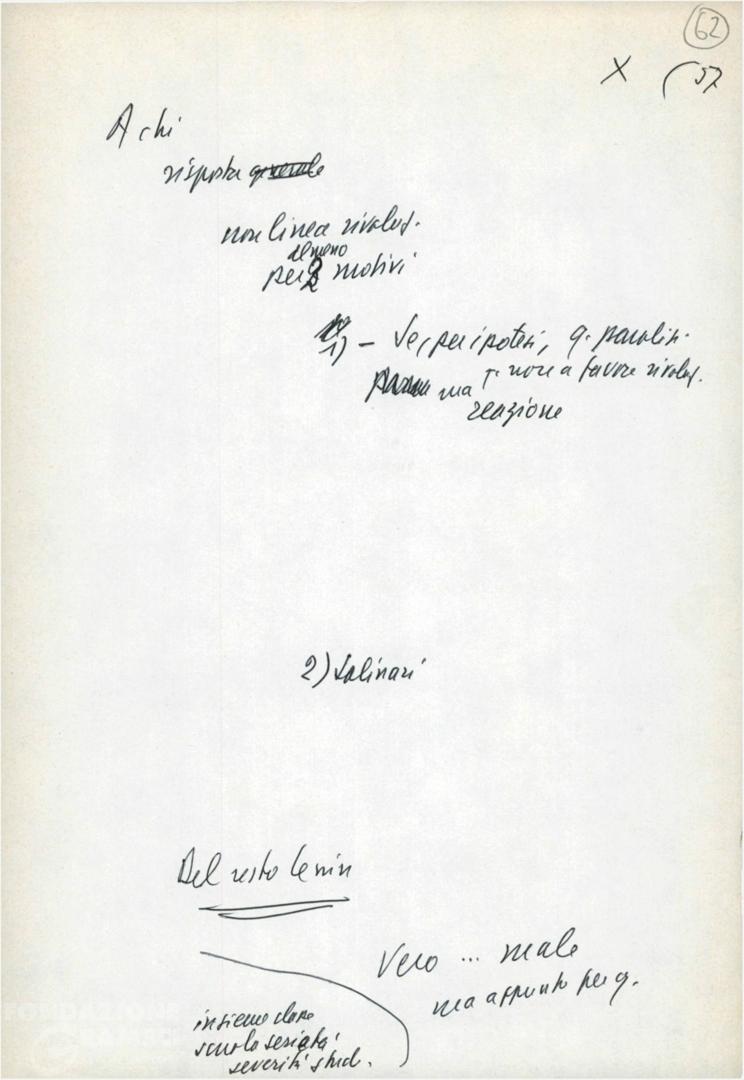 62
X (57
A chi
risposta generale
non linea rivoluz.
almeno
per 2 motivi
1) – Se, per ipotesi, q. paralis.
ma non a favore rivoluz.
reazione
2) Salinari
Del resto Lenin
Vero ... male
ma appunto per q.
insieme dare
scuola serietà
severità stud.
FONDAZIONE
GRAMSCI